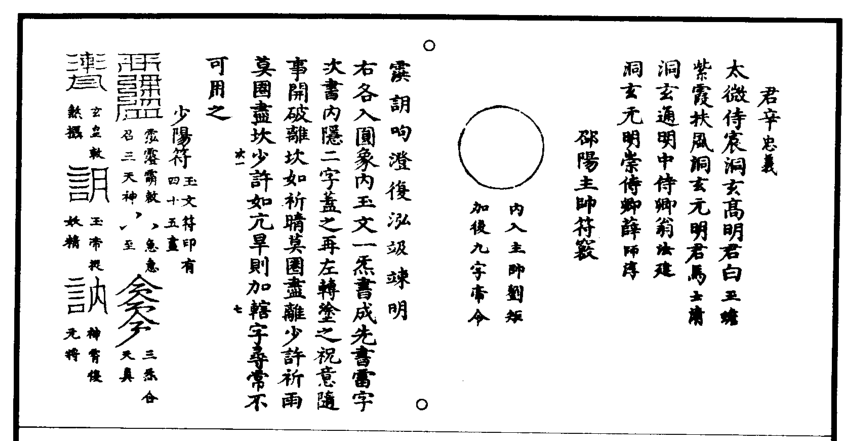 君辛忠義
太微侍宸洞玄高明君白玉蟾
紫霞扶風洞玄元明君馬士清
洞玄通明中侍卿翁法建
洞玄元明崇侍卿薛師淳
邵陽主帥符竅
內入主帥劉矩
加後九字帝令
澄復泓竦明
右各入圓象內玉文一炁書成先書雷字
次書內隱二字蓋之再左轉塗之祝意隨
事開破離坎如祈晴莫圈盡離少許祈雨
莫圈盡坎少許如亢旱則加轄字尋常不
可用之
少陽符
玉文符印有
四十五畫
召三天神
急急
至
三炁合
天真
玄皇敕
玉帝捉
妖精
神霄後
元將